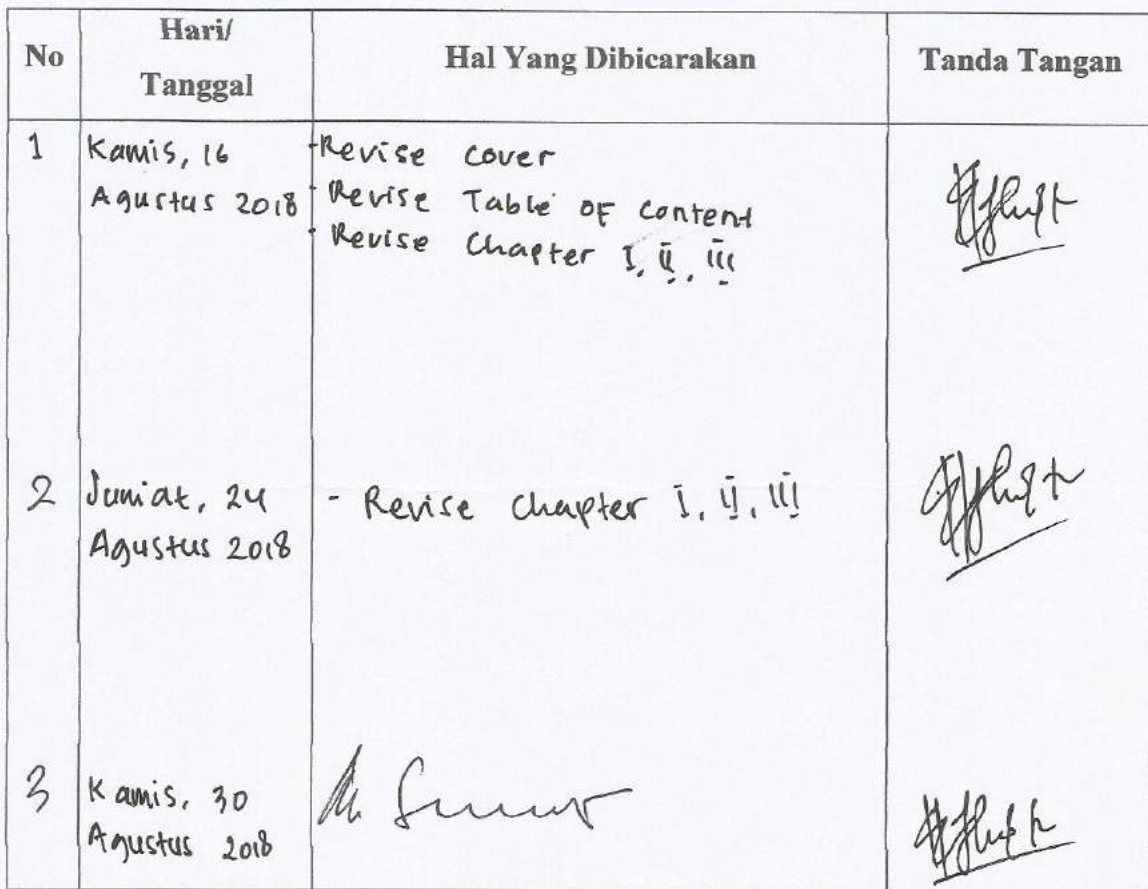 No
Hari/
Tanggal
Hal Yang Dibicarakan
Tanda Tangan
1
Kamis, 16
Agustus 2018
-Revise cover
- Revise Table OF content
- Revise Chapter I, II, III
2
Jumat, 24
Agustus 2018
- Revise Chapter I, II, III
3
Kamis, 30
Agustus 2018